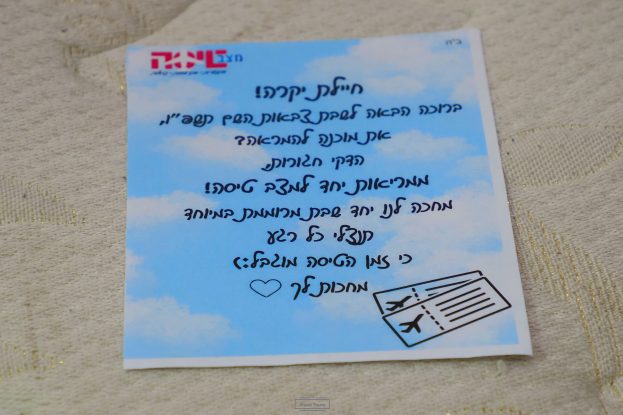 ב"ה
מצב
טיסה
חיילת יקרה!
ברוכה הבאה לשבת צבאות השם תשפ"ו,
את מוכנה להמראה?
הדקי חגורות,
ממריאות יחד למצב טיסה!
מחכה לנו יחד שבת מרוממת במיוחד
תנצלי כל רגע
כי זמן הטיסה מוגבל:)
מחכות לך